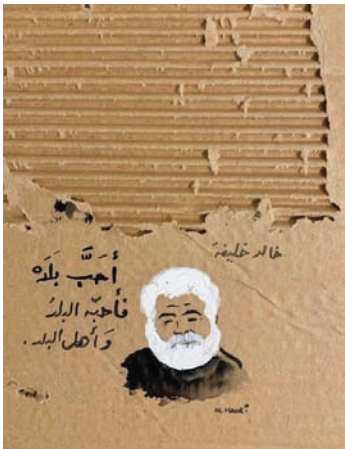 خالد خليفة
أَحَبَّ بَلَدَهْ
فأحبّه البلدُ
وَأهل البلد.